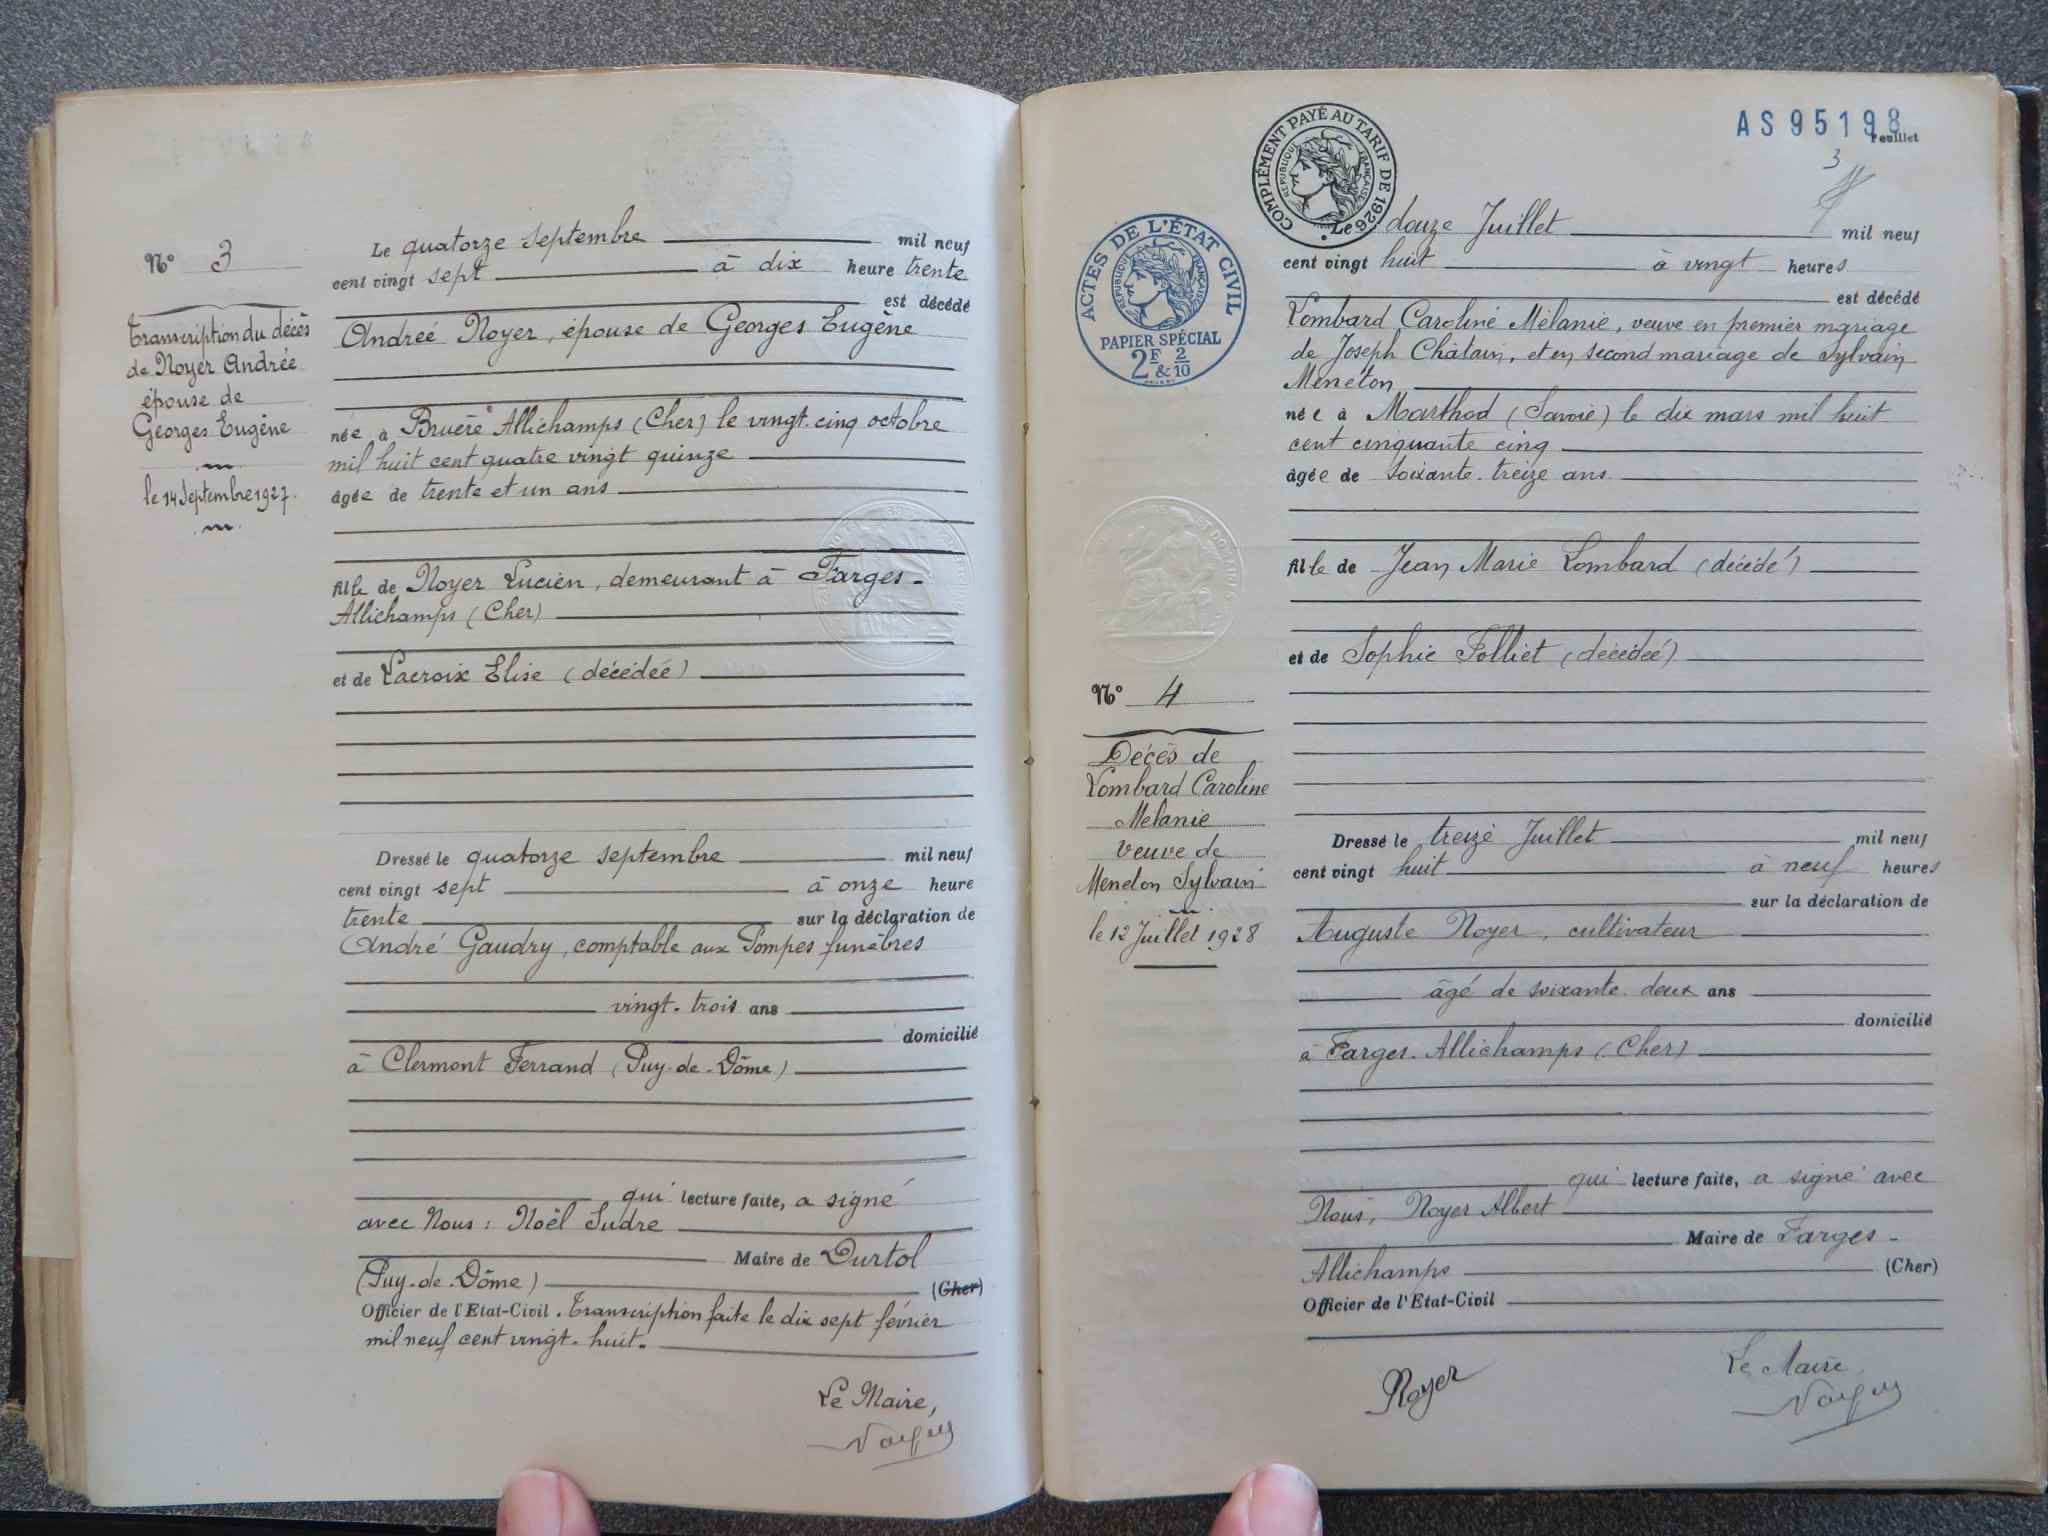 N° 3
Transcription du décès
de Noyer Andrée
épouse de
Georges Eugène
le 14 Septembre 1927.
Le quatorze septembre mil neuf
cent vingt sept à dix heure trente
est décédé
Andreé Noyer, épouse de Georges Eugène
née à Bruère Allichamps (Cher) le vingt-cinq octobre
mil huit cent quatre vingt quinze
âgée de trente et un ans
fille de Noyer Lucien, demeurant à Farges-
Allichamps (Cher)
et de Lacroix Elise (décédeé)
Dressé le quatorze septembre mil neuf
cent vingt sept à onze heure
trente sur la déclaration de
André Gaudry, comptable aux Pompes funèbres
vingt-trois ans
domicilié
à Clermont Ferrand (Puy-de-Dôme)
qui lecture faite, a signé
avec Nous : Noël Sudre
Maire de Durtol
(Puy-de-Dôme) (Cher)
Officier de l'Etat-Civil. Transcription faite le dix sept février
mil neuf cent vingt-huit.
Le Maire,
AS95198
Feuillet
3
COMPLÉMENT PAYÉ AU TARIF DE 1926
RÉPUBLIQUE FRANÇAISE
ACTES DE L'ÉTAT CIVIL
RÉPUBLIQUE FRANÇAISE
PAPIER SPÉCIAL
2F & 2/10
N° 4
Décès de
Lombard Caroline
Mélanie
veuve de
Meneton Sylvain
le 12 Juillet 1928
Le douze Juillet mil neuf
cent vingt huit à vingt heures
est décédé
Lombard Caroline Mélanie, veuve en premier mariage
de Joseph Châtain, et en second mariage de Sylvain
Meneton
née à Marthod (Savoie) le dix mars mil huit
cent cinquante cinq
âgée de soixante-treize ans
fille de Jean Marie Lombard (décédé)
et de Sophie Folliet (décédeé)
Dressé le treize Juillet mil neuf
cent vingt huit à neuf heures
sur la déclaration de
Auguste Noyer, cultivateur
âgé de soixante-deux ans
domicilié
à Farges-Allichamps (Cher)
qui lecture faite, a signé avec
Nous, Noyer Albert
Maire de Farges-
Allichamps (Cher)
Officier de l'Etat-Civil
Noyer
Le Maire